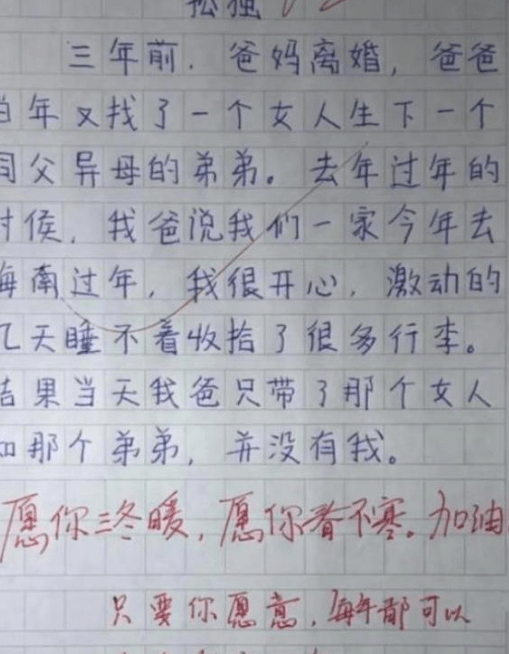 孤独
三年前，爸妈离婚，爸爸
当年又找了一个女人生下一个
同父异母的弟弟。去年过年的
时侯，我爸说我们一家今年去
海南过年，我很开心，激动的
几天睡不着收拾了很多行李。
结果当天我爸只带了那个女人
和那个弟弟，并没有我。
愿你三冬暖，愿你春不寒。加油
只要你愿意，每年都可以